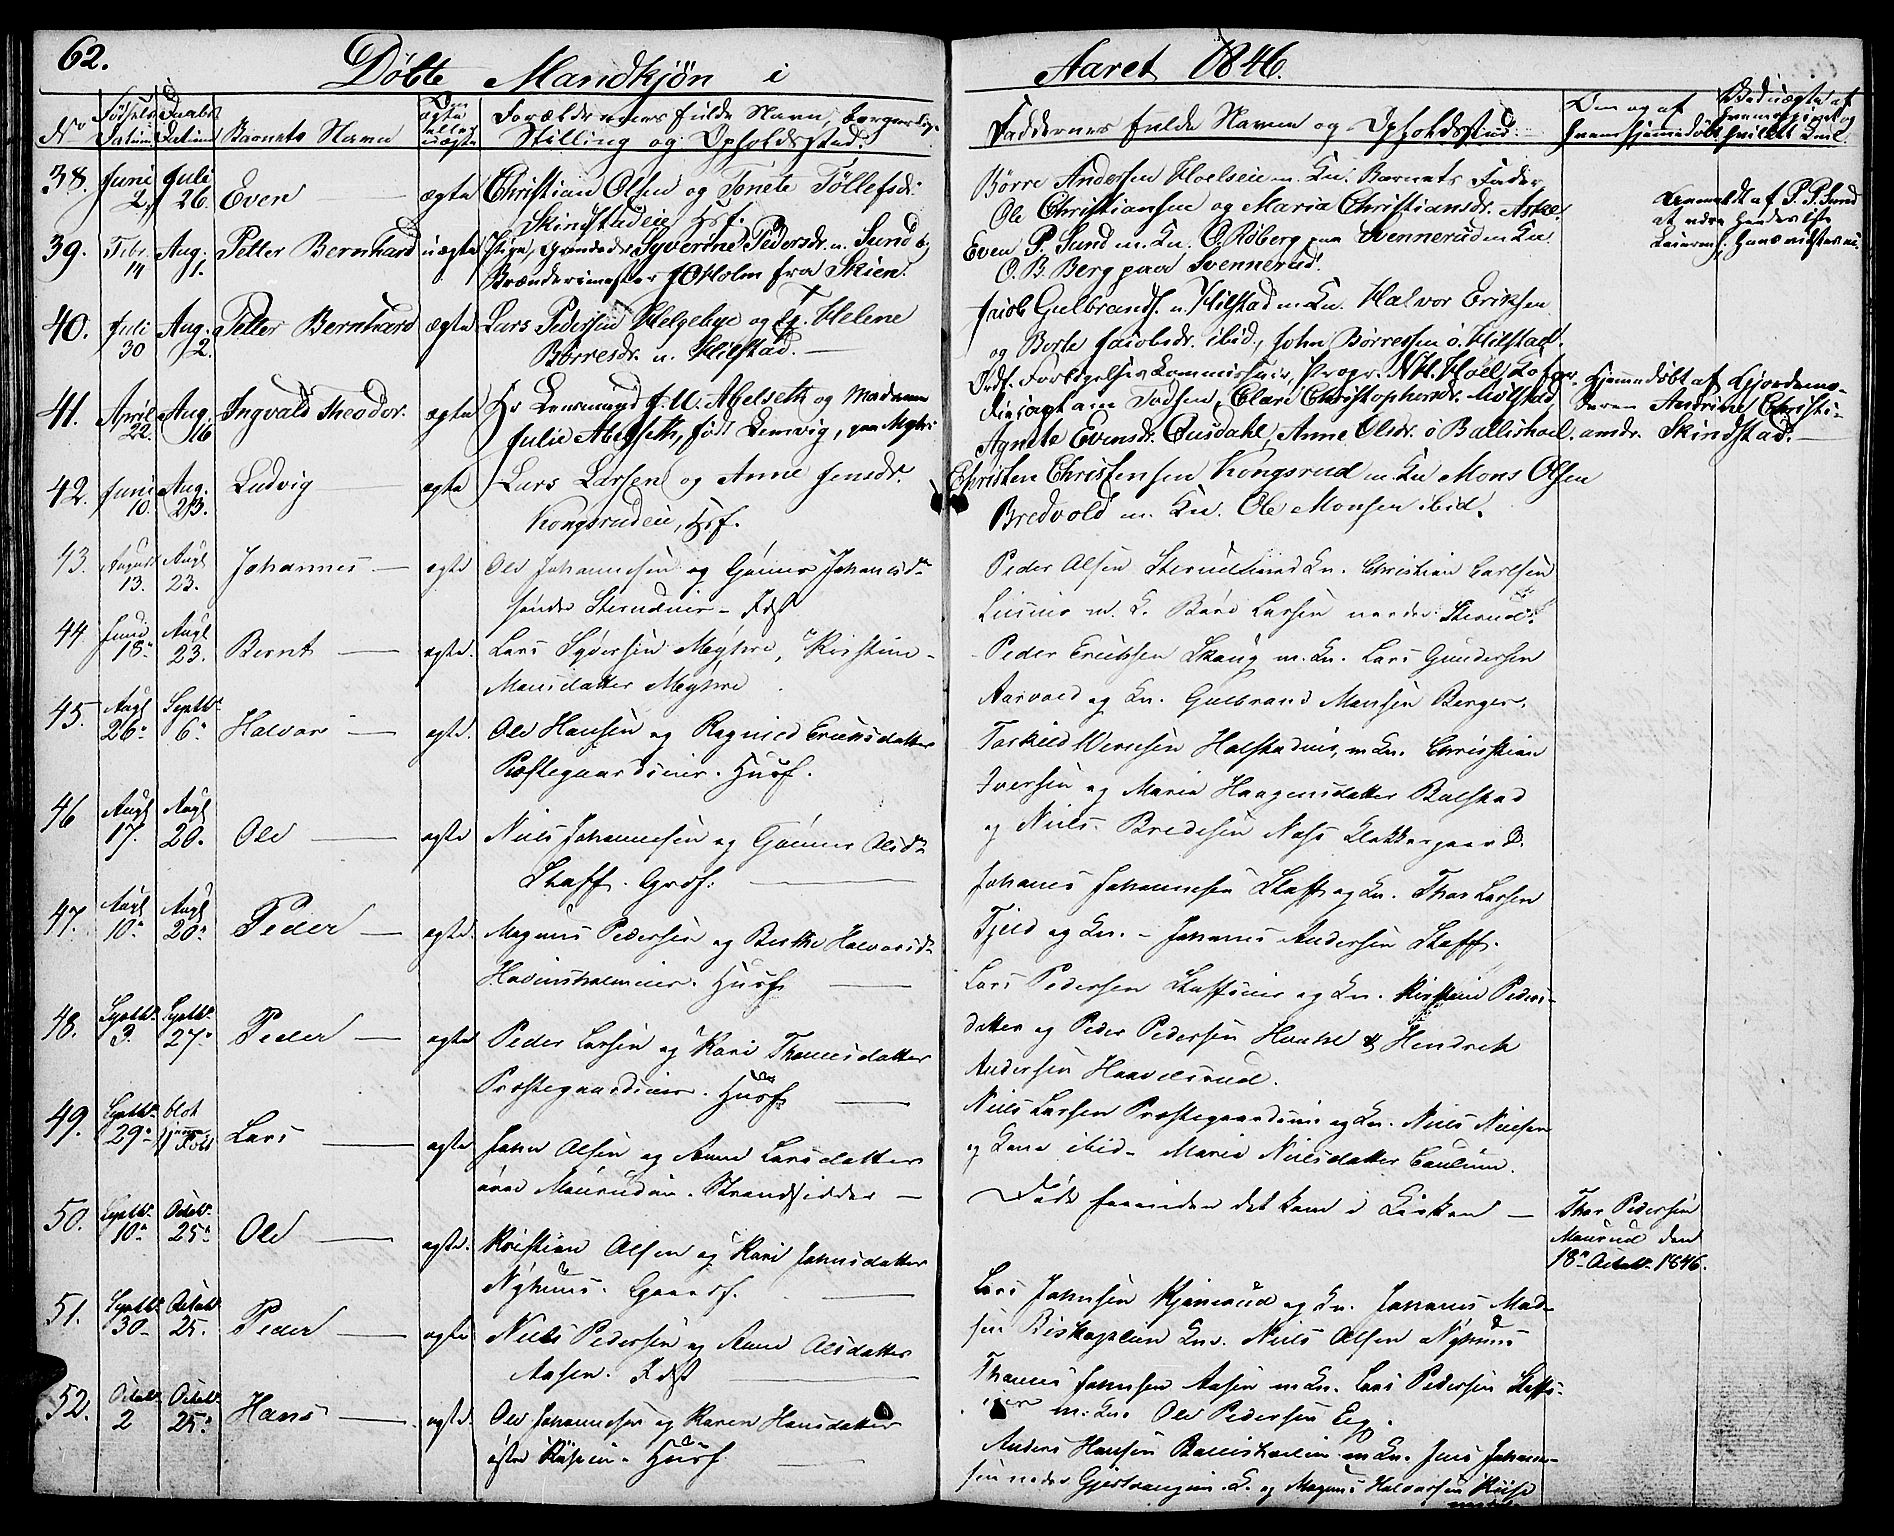 62.
Døbte Mandkjøn i Aaret 1846.
No Fødsels Datum Daabs Datum Barnets Navn Om ægte eller uægte Forældrenes fulde Navn, borgerlige Stilling og Opholdssted. Faddernes fulde Navn og Opholdssted. Om og af hvem hjemmedøbt
38. Juni 2. Juli 26. Even ægte Christian Olsen og Tonete Tollefsdr.
Skindstadeie Hsf.
Børre Andersen Hoelseie m. Kn. Barnets Fader
Ole Christiansen og Maria Christiansdr.
39. Febr. 14 Aug. 1. Petter Bernhard uægte Pige Syverine Pedersdr. n. Sund og
Brænderimester J. Holm fra Skien.
Even P. Sund m. Kn. O. Roberg paa Svennerud m Kn
O. B. Berg paa Svennerud.
Anmeldt af P. P. Sund
40. Juli 30 Aug. 2. Petter Bernhard ægte Lars Pedersen Helgebye og Helene
Børresdr. n. Hilstad.
Jacob Gulbrands. n. Hilstad m Kn. Halvor Eriksen
og Berte Jacobsdr. ibid, John Børresen ø. Hilstad.
41. April 22. Aug. 16 Ingvald Theodor. ægte Hr Lensmand J. U. Abelseth og Madame
Julie Abelseth, født Lemvig, paa
Ordf. Forligelses Commissair, Propr. N. H. Hoel
Clare Christophersdr. Milstad
Agnete Evensdr. Anne Olsdr. ø Ballishoel.
Hjemmedøbt af Gjordemo-
deren Andrine Christi-
ansdr. Skindstad.
42. Juni 10. Aug. 23. Ludvig ægte Lars Larsen og Anne Jensdr.
Kongsrudeie, Hsf.
Christen Christensen Kongsrud m Kn Mons Olsen
Bredvold m. Kn. Ole Monsen ibid.
43. August 13. Augt 23. Johannes ægte Ole Johannesen og Gønner Johansdr
søndre Sterudeier
Peder Olsen Sterud m Kn. Christian Carlsen
m. K. Baard Larsen nordre Sterud.
44. Juni 18. Augt 23. Bernt ægte. Lars Sørensen Meyhre, Kirstine
Monsdatter Meyhre
Peder Eriksen Skaug m. Kn. Lars Gundersen
Aarvold og Kn. Gulbrand Monsen Berger.
45. Augt 26. Septbr. 6. Halvor ægte. Ole Hansen og Ragnild Eriksdatter
Præstegaardseier. Husf.
Torkild Halstadeier, m Kn. Christian
Iversen og Maria Haagensdatter Balstad
og Niels Bredesen Næss Klokkergaard.
46 Augt 17. Augt 20. Ole ægte Niels Johannesen og Gønner Olsdr
Staff. Grdf.
Johanes Johannesen Staff og Kn. Thor Larsen
Fjeld og Kn. - Johanes Andersen Staff.
47. Augt 10. Augt 20. Peder ægte. Magnus Pedersen og Berthe Halvorsdr
Husf
Lars Pedersen Staffseier og Kn. Kirstine Peders-
datter og Peder Pedersen & Hendrek
Andersen Haavelsrud.
48. Septbr. 3. Septbr. 27. Peder ægte Peder Larsen og Kari Thomesdatter
Præstegaardseier. Husf
Niels Larsen Præstegaardseie og Kn. Niels Nielsen
og Kone ibid- Maria Nielsdatter
49. Septbr. 29. blot hjemmedøbt Lars ægte Johan Olsen og Anne Larsdatter
øvre Maurudeie. Strandsidder
Døde forinden det kom i Kirken
Thor Pedersen
Maurud den
18. Octobr. 1846.
50. Septbr. 10. Octobr. 25. Ole ægte. Kristian Olsen og Kari Johnsdatter
Nyhuus. Gaardf.
Lars Johnsen Kjønerud og Kn. Johanes Mad-
sen Biskoplien Kn. Niels Olsen Nyhuus
51. Septbr. 30 Octobr. 25. Peder ægte Niels Pedersen og Anne Olsdatter
Aasen.
Thomes Johnsen Aasen m Kn. Lars Pedersen Staffs-
eier m. Kn. Ole Pedersen Eeg.
52. Octobr. 2 Octobr. 25. Hans ægte. Ole Johannesen og Karen Hansdatter
østre Husf.
Anders Hansen Ballishoelen m Kn. Jens Johanne-
sen nedre K. og Magnus Halvorsen